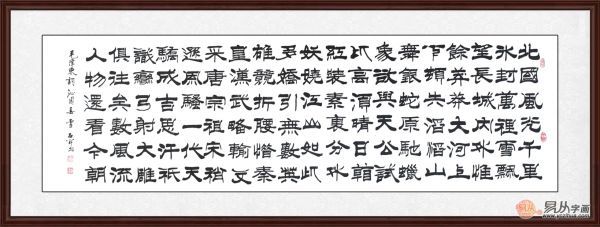 北國風光千里
冰封萬里雪飄
望長城內外惟
餘莽莽大河上
下頓失滔滔山
舞銀蛇原馳蠟
象欲與天公試
比高須晴日看
紅裝素裹分外
妖嬈江山如此
多嬌引無數英
雄競折腰惜秦
皇漢武略輸文
采唐宗宋祖稍
遜風騷一代天
驕成吉思汗祇
識彎弓射大雕
俱往矣數風流
人物還看今朝
毛澤東詞沁園春雪
易从字画
www.yczihua.com